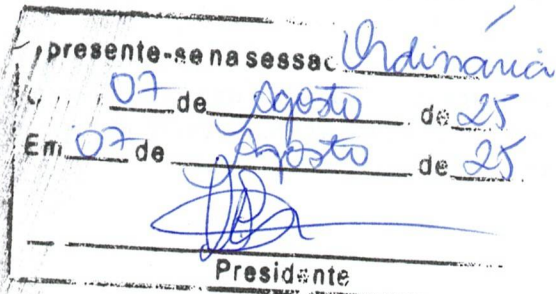 presente-se na sessao Ordinária
07 de Agosto de 25
Em 07 de Agosto de 25
Presidente